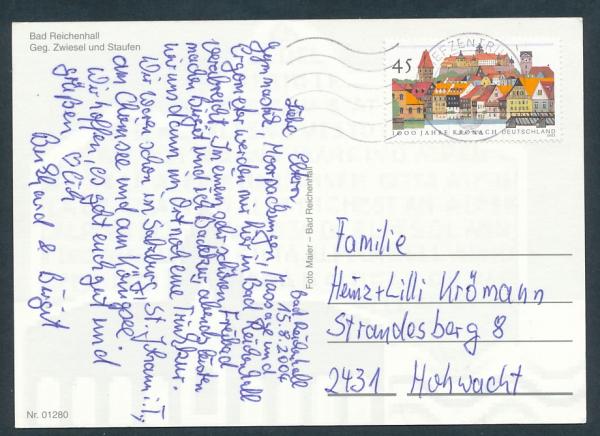 Bad Reichenhall
Geg. Zwiesel und Staufen
Bad Reichenhall
15.8.2004
Liebe Eltern
Gymnastik, Moorpackungen, Massage und
Ergometer werden mir hier in Bad Reichenhall
verabreicht. In einem sehr schönen Freibad
machen Birgit und ich Badetour
wir und dann im Ort noch eine Trinkkur.
Wir waren schon in Salzburg, St. Johann i.T.,
am Chiemsee und am Königssee.
Wir hoffen, es geht euch gut und
grüßen Euch
Burkhard & Birgit
Foto Maier – Bad Reichenhall
BRIEFZENTRUM
45
1000 JAHRE KRONACH DEUTSCHLAND
Familie
Heinz + Lilli Krömann
Strandesberg 8
2431 Hohwacht
Nr. 01280